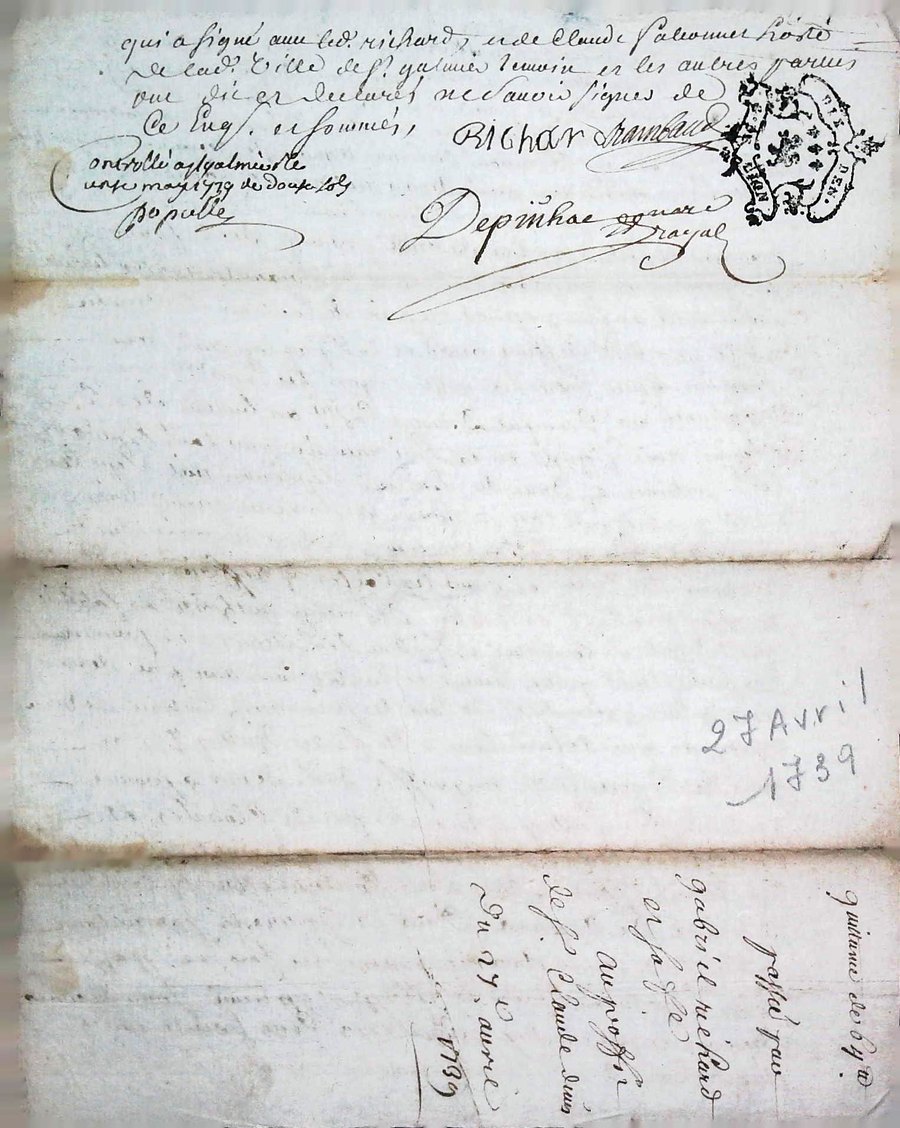 qui a signé avec led. richard, et de Claude
de lad. Ville de St. galmier temoin et les autres parties
ont dit et declarés ne Savoir signer de
Ce Enq. et sommés,
RICHARD Rambaud
Controllé a St galmier le
onze may 1739 Re douze sols
populle
Depinhac notaire
Royal
GEN.
27 Avril
1739
quittance de 64 ₶
passé par
gabriel richard
et sa fe
au proffit
de Sr Claude
Du 27e avril
1739